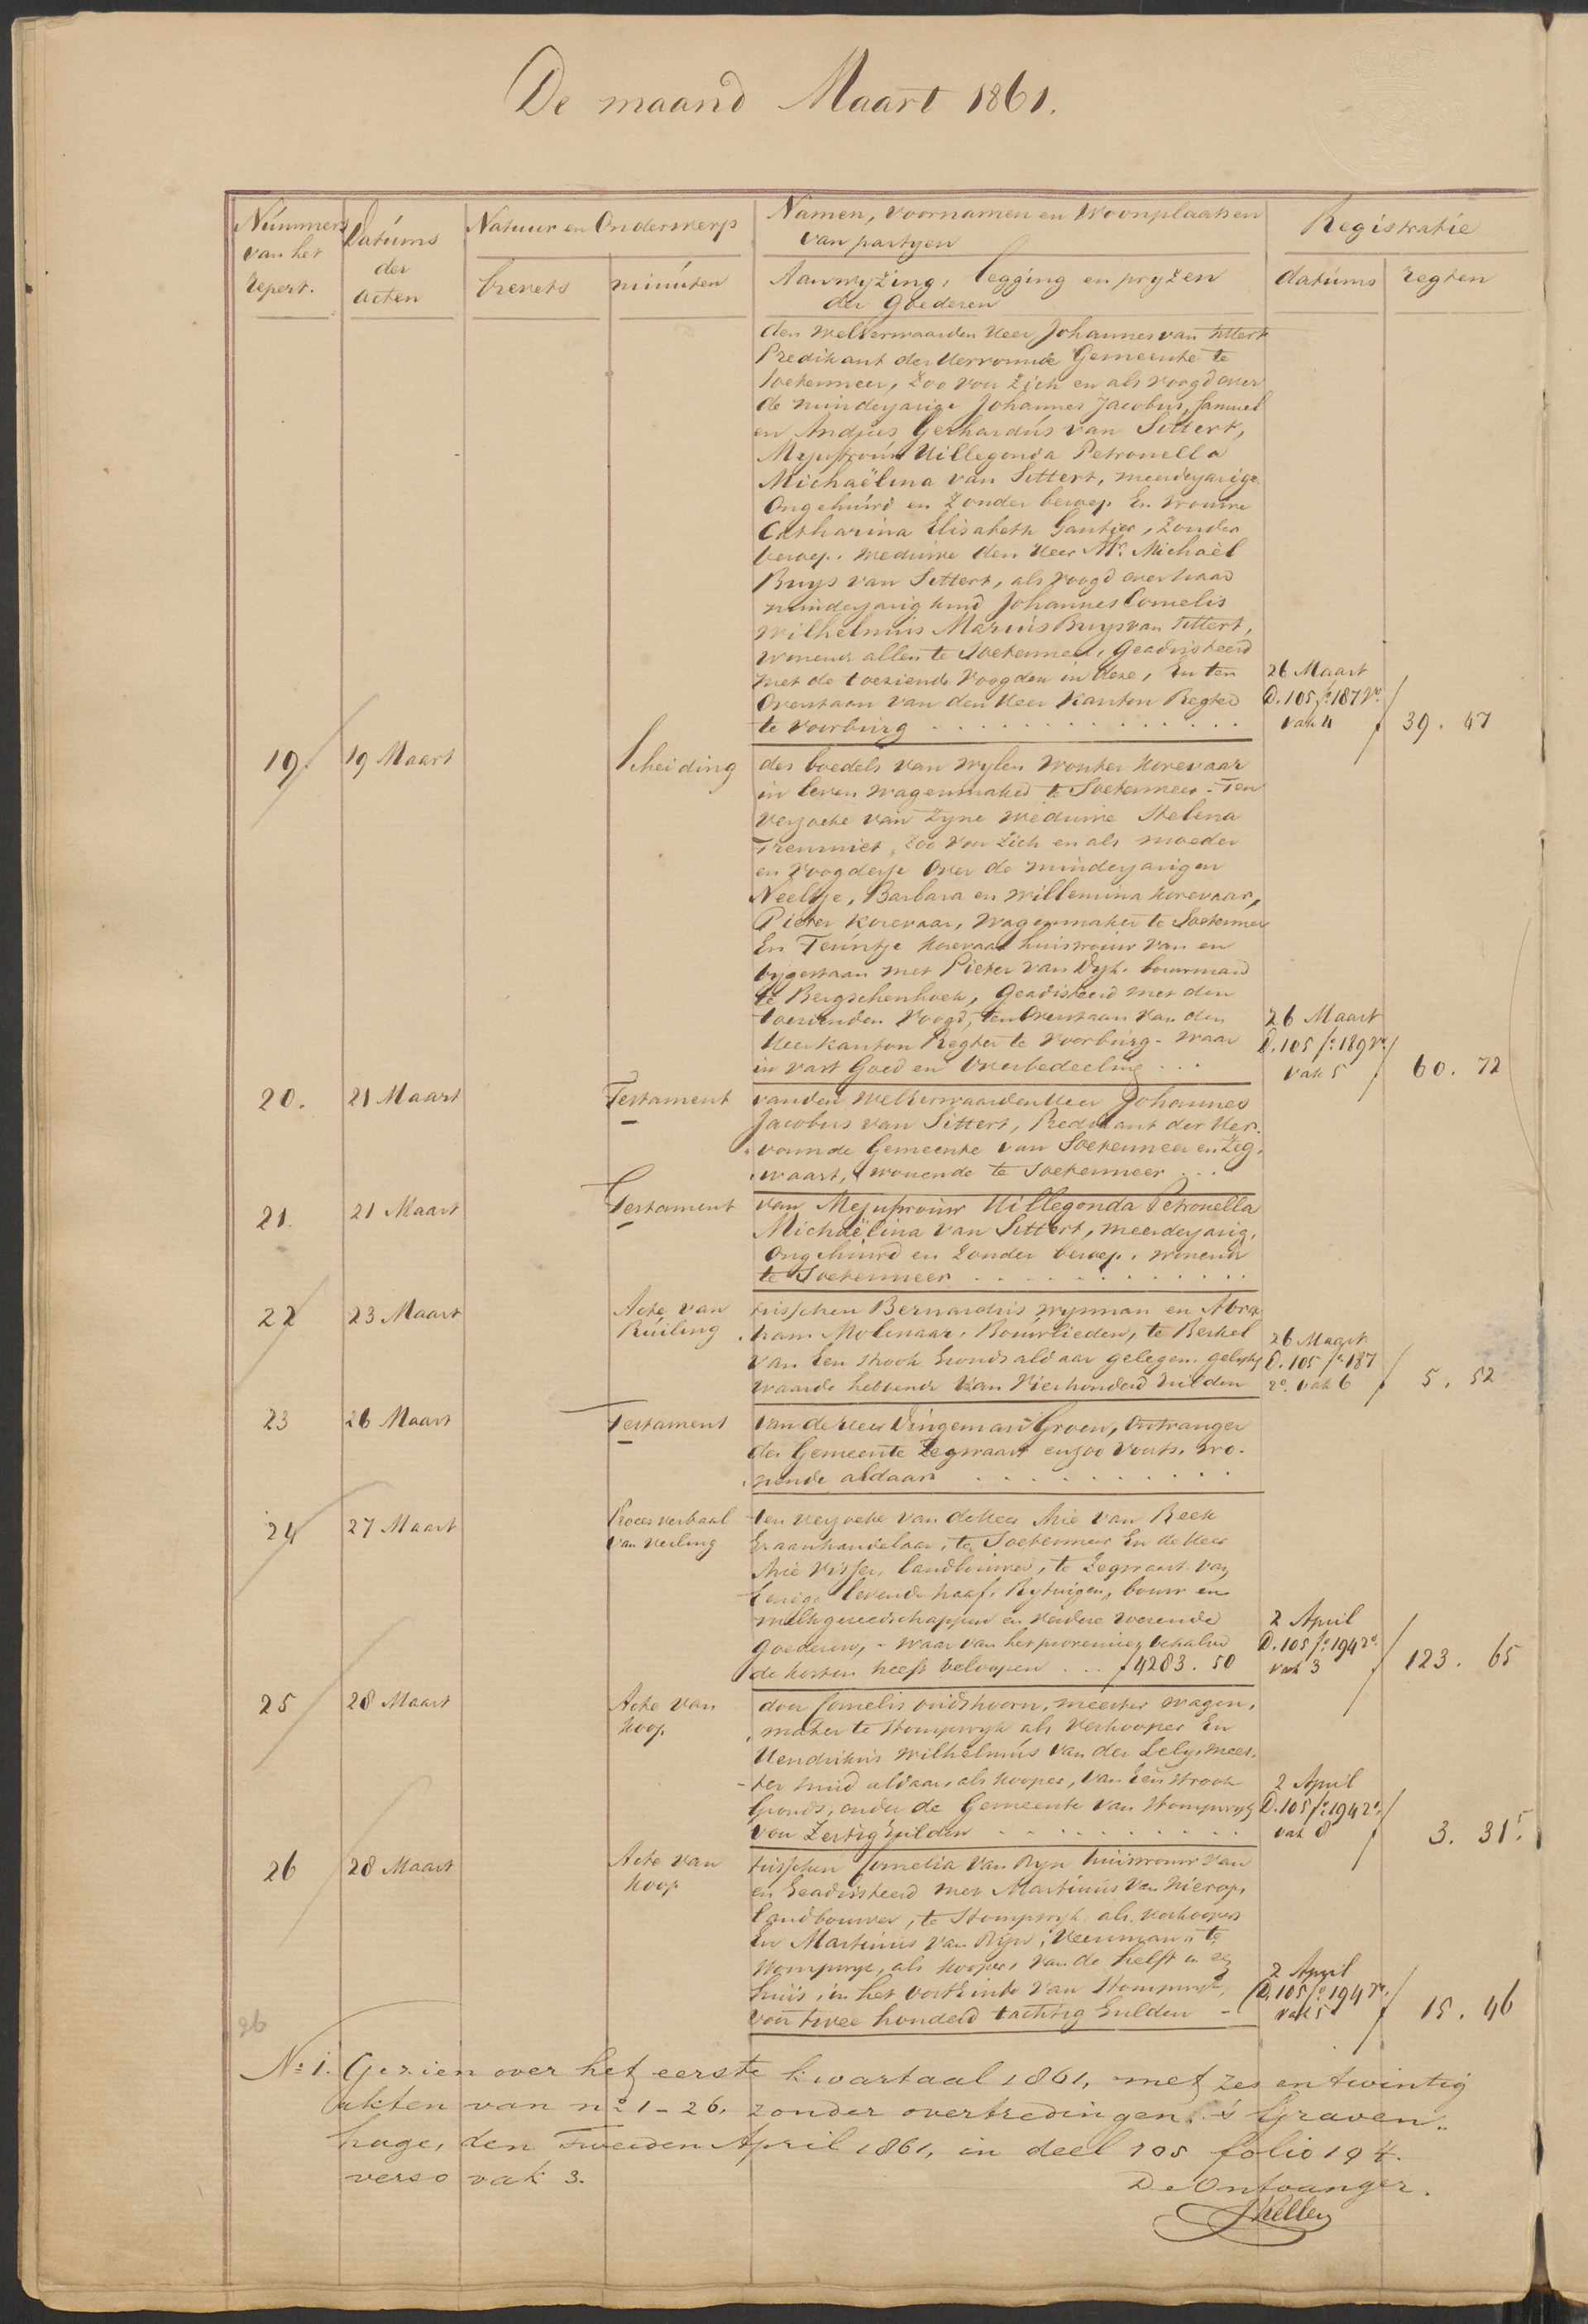 De maand Maart 1861.
Nummers van het repert.
Datums der acten
Natuur en Onderwerp
brevets
minuten
Namen, voornamen en woonplaatsen van partyen
Aanwyzing, legging en pryzen der Goederen
Registratie
datums
regten
den WelEerwaarden Heer Johannes van Sittert
Predikant der Hervormde Gemeente te
Soetermeer, Zoo voor Zich en als voogd over
de minderjarige Johannes Jacobus, Samuel
en Andries Gerhardus van Sittert,
Mejufvrouw Hillegonda Petronella
Michaëlina van Sittert, meerderjarige
Ongehuwd en Zonder beroep En Vrouwe
Catharina Elisabeth Gautier, Zonder
beroep, Weduwe den Heer Mr. Michaël
Buys van Sittert, als voogd over haar
minderjarig kind Johannes Cornelis
Wilhelmus Marius Buys van Sittert,
Wonend allen te Soetermeer, Geadsisteerd
met de toeziende Voogden in deze, En ten
Overstaan van den Heer Kanton Regter
te Voorburg
26 Maart
D. 105 fo. 187 Vo.
vak 4
f 39. 47
19. 19 Maart Scheiding des boedels van wylen Wouter Korevaar
in leven wagenmaker te Soetermeer. Ten
verzoeke van Zyne Weduwe Helena
, Zoo voor Zich en als moeder
en Voogdesse Over de minderjarigen
Neeltje, Barbara en Willemina Korevaar,
Pieter Korevaar, Wagenmaker te Soetermeer
En Teuntje Korevaar huisvrouw van en
bijgestaan met Pieter van Dyk, bouwman
te Bergschenhoek, Geadsisteerd met den
toezienden Voogd, ten Overstaan van den
Heer Kanton Regter te Voorburg - Waar
in vast Goed en Overbedeeling
26 Maart
D. 105 fo. 189 Vo.
vak 5
f 60. 72
20. 21 Maart Testament van den WelEerwaarden Heer Johannes
Jacobus van Sittert, Predikant der Her-
vormde Gemeente van Soetermeer en Zeg-
waart, wonende te Soetermeer
21. 21 Maart Testament van Mejufvrouw Hillegonda Petronella
Michaëlina van Sittert, meerderjarig,
Ongehuwd en Zonder beroep, wonend
te Soetermeer
22 23 Maart Acte van Ruiling tusschen Bernardus Wynman en Abra-
ham Molenaar, Bouwlieden, te Berkel
van Een strook Gronds aldaar gelegen, gelyke
waarde hebbende van Vierhonderd Gulden
26 Maart
D. 105 fo. 187
Vo. vak 6
f 5. 52
23 26 Maart Testament van de Heer Dingeman Groen, Ontvanger
der Gemeente Zegwaart enzoo voorts, wo-
nende aldaar
24 27 Maart Proces verbaal van Veiling ten verzoeke van de Heer Arie van Reek
Graanhandelaar, te Soetermeer En de Heer
Arie Visser, landbouwer, te Zegwaart van
Eenige levende haaf, Rytuigen, bouw en
melkgereedschappen en verdere roerende
Goederen, - waar van het provenue, behalve
de kosten heeft beloopen f 4283. 50
2 April
D. 105 fo. 194 Vo.
vak 3
f 123. 65
25 28 Maart Acte van koop door Cornelis Oudshoorn, meester wagen-
maker te Stompwyk als Verkooper En
Hendrikus Wilhelmus van der Lely, mees-
ter smid aldaar, als kooper, van Een strook
Gronds, onder de Gemeente van Stompwyk
voor Zestig Gulden
2 April
D. 105 fo. 194 Vo.
vak 8
f 3. 31⁵
26 28 Maart Acte van koop tusschen Cornelia van Ryn huisvrouw van
en Geadsisteerd met Martinus van Nierop,
Landbouwer, te Stompwyk, als Verkoopers
En Martinus van Ryn, Veenman, te
Stompwyk, als kooper, van de helft in een
huis, in het oosteinde van Stompwyk,
voor twee honderd tachtig Gulden
2 April
D. 105 fo. 194 Vo.
vak 5
f 15. 46
26
No. 1. Gezien over het eerste kwartaal 1861, met zes en twintig
akten van no. 1 - 26. zonder overtredingen. 's Graven-
hage, den Tweeden April 1861, in deel 105 folio 194.
verso vak 3.
De Ontvanger.